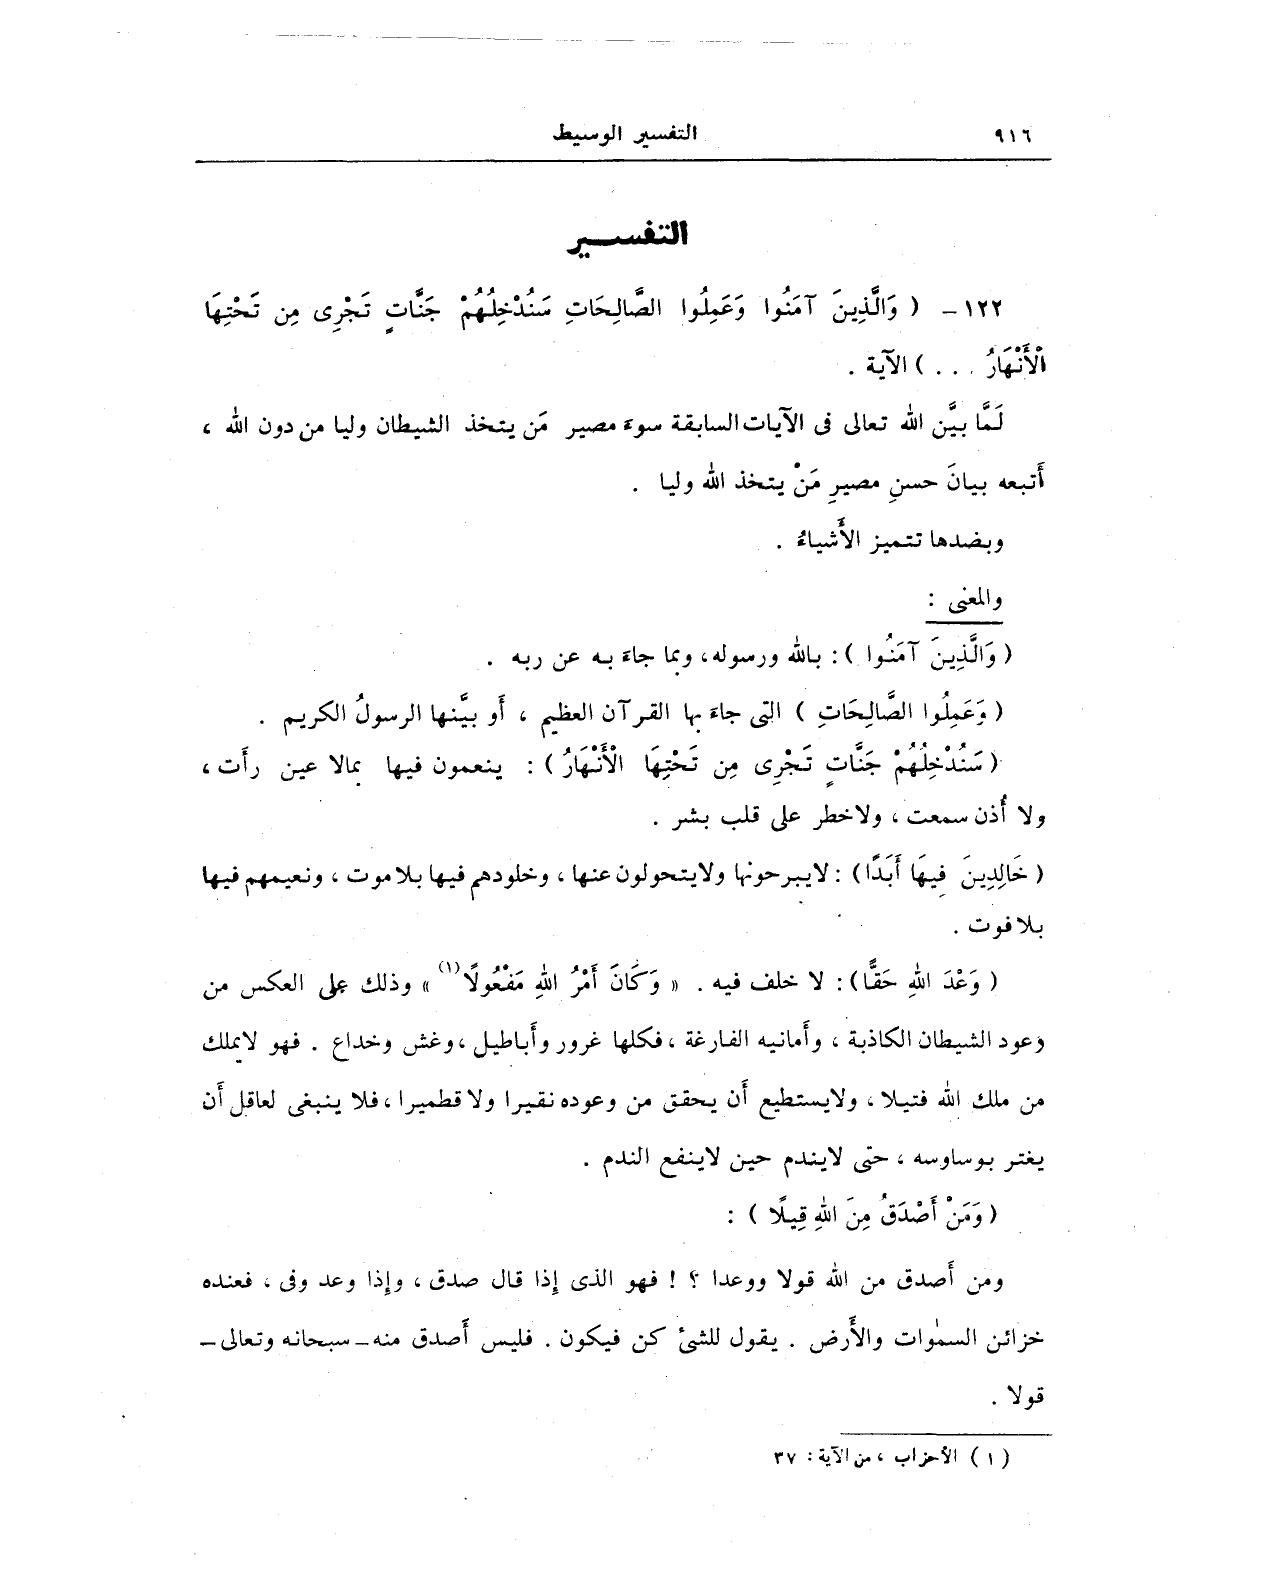 ٩١٦
التفسير الوسيط
التفسـير
١٢٢ - ( وَالَّذِينَ آمَنُوا وَعَمِلُوا الصَّالِحَاتِ سَنُدْخِلُهُمْ جَنَّاتٍ تَجْرِى مِن تَحْتِهَا
الْأَنْهَارُ . . . ) الآية .
لَمَّا بيَّن الله تعالى فى الآيات السابقة سوءَ مصير مَن يتخذ الشيطان وليا من دون الله ،
أتبعه بيانَ حسنِ مصيرِ مَنْ يتخذ الله وليا .
وبضدها تتميز الأَشياءُ .
والمعنى :
( وَالَّذِينَ آمَنُوا ) : بالله ورسوله، وبما جاءَ به عن ربه .
( وَعَمِلُوا الصَّالِحَاتِ ) التى جاءَ بها القرآن العظيم ، أَو بيَّنها الرسولُ الكريم .
( سَنُدْخِلُهُمْ جَنَّاتٍ تَجْرِى مِن تَحْتِهَا الْأَنْهَارُ ) : ينعمون فيها بمالا عين رأَت ،
ولا أُذن سمعت ، ولاخطر على قلب بشر .
( خَالِدِينَ فِيهَا أَبَدًا ) : لايبرحونها ولايتحولون عنها ، وخلودهم فيها بلاموت ، ونعيمهم فيها
بلا فوت .
( وَعْدَ اللهِ حَقًّا ) : لا خلف فيه . « وَكَانَ أَمْرُ اللهِ مَفْعُولًا(١) » وذلك على العكس من
وعود الشيطان الكاذبة ، وأَمانيه الفارغة ، فكلها غرور وأَباطيل ، وغش وخداع . فهو لايملك
من ملك الله فتيلا ، ولايستطيع أَن يحقق من وعوده نقيرا ولا قطميرا ، فلا ينبغى لعاقل أَن
يغتر بوساوسه ، حتى لايندم حين لاينفع الندم .
( وَمَنْ أَصْدَقُ مِنَ اللهِ قِيلًا ) :
ومن أَصدق من الله قولا ووعدا ؟ ! فهو الذى إِذا قال صدق ، وإِذا وعد وفى ، فعنده
خزائن السمٰوات والأَرض . يقول للشئ كن فيكون . فليس أَصدق منه ـ سبحانه وتعالى ـ
قولا .
( ١ ) الأحزاب ، من الآية : ٣٧